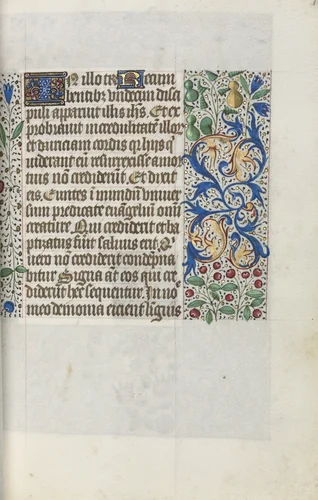 IN illo tp̄r Recum
bentibȝ vndecim disci
pulis apparuit illis ih̄s. Et ex
probrauit incredulitatē illoȝ
et duriciam cordis qȝ hijs q̄
uiderant eū resurrexisse a mor
tuis nō crediderūt. Et dixit
eis. Euntes in mundū vniuer
sum predicate euāgeliū omī
creature. Qui crediderit et ba
ptizatus fūit saluus erit. Q
uero nō crediderit condēpna
bitur Signa aūt eos qui cre
diderūt hec sequentur. In no
meo demonia eicient liguis